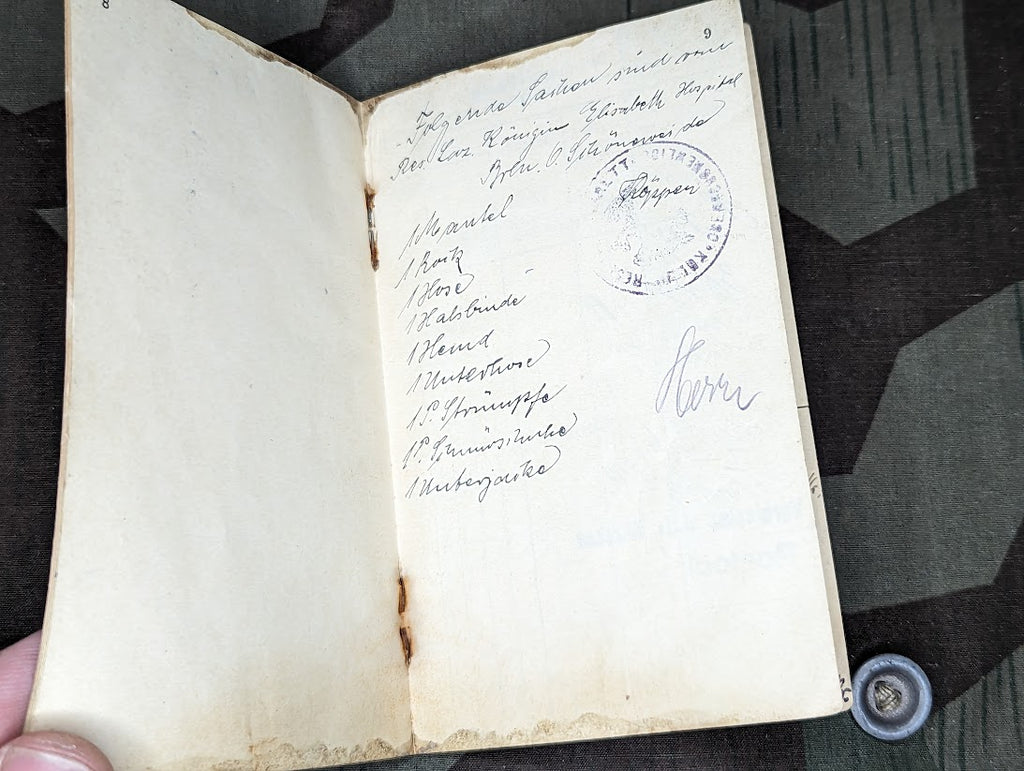 8
9
Folgende Sachen sind vom
Res. Laz. Königin Elisabeth Hospital
Brln. O. Schöneweide
1 Mantel
1 Rock
1 Hose
1 Halsbinde
1 Hemd
1 Unterhose
1 P. Strümpfe
1 P. Schnürschuhe
1 Unterjacke
Herrn